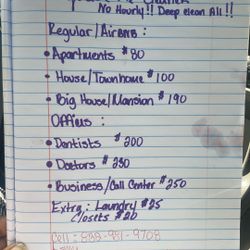 No Hourly!! Deep clean All!!
Regular/AirBNB:
• Apartments $80
• House/Townhome $100
• Big House/Mansion $190
Offices:
• Dentists $200
• Doctors $230
• Business/Call Center $250
Extra: Laundry $25
Closets $20
Cell: